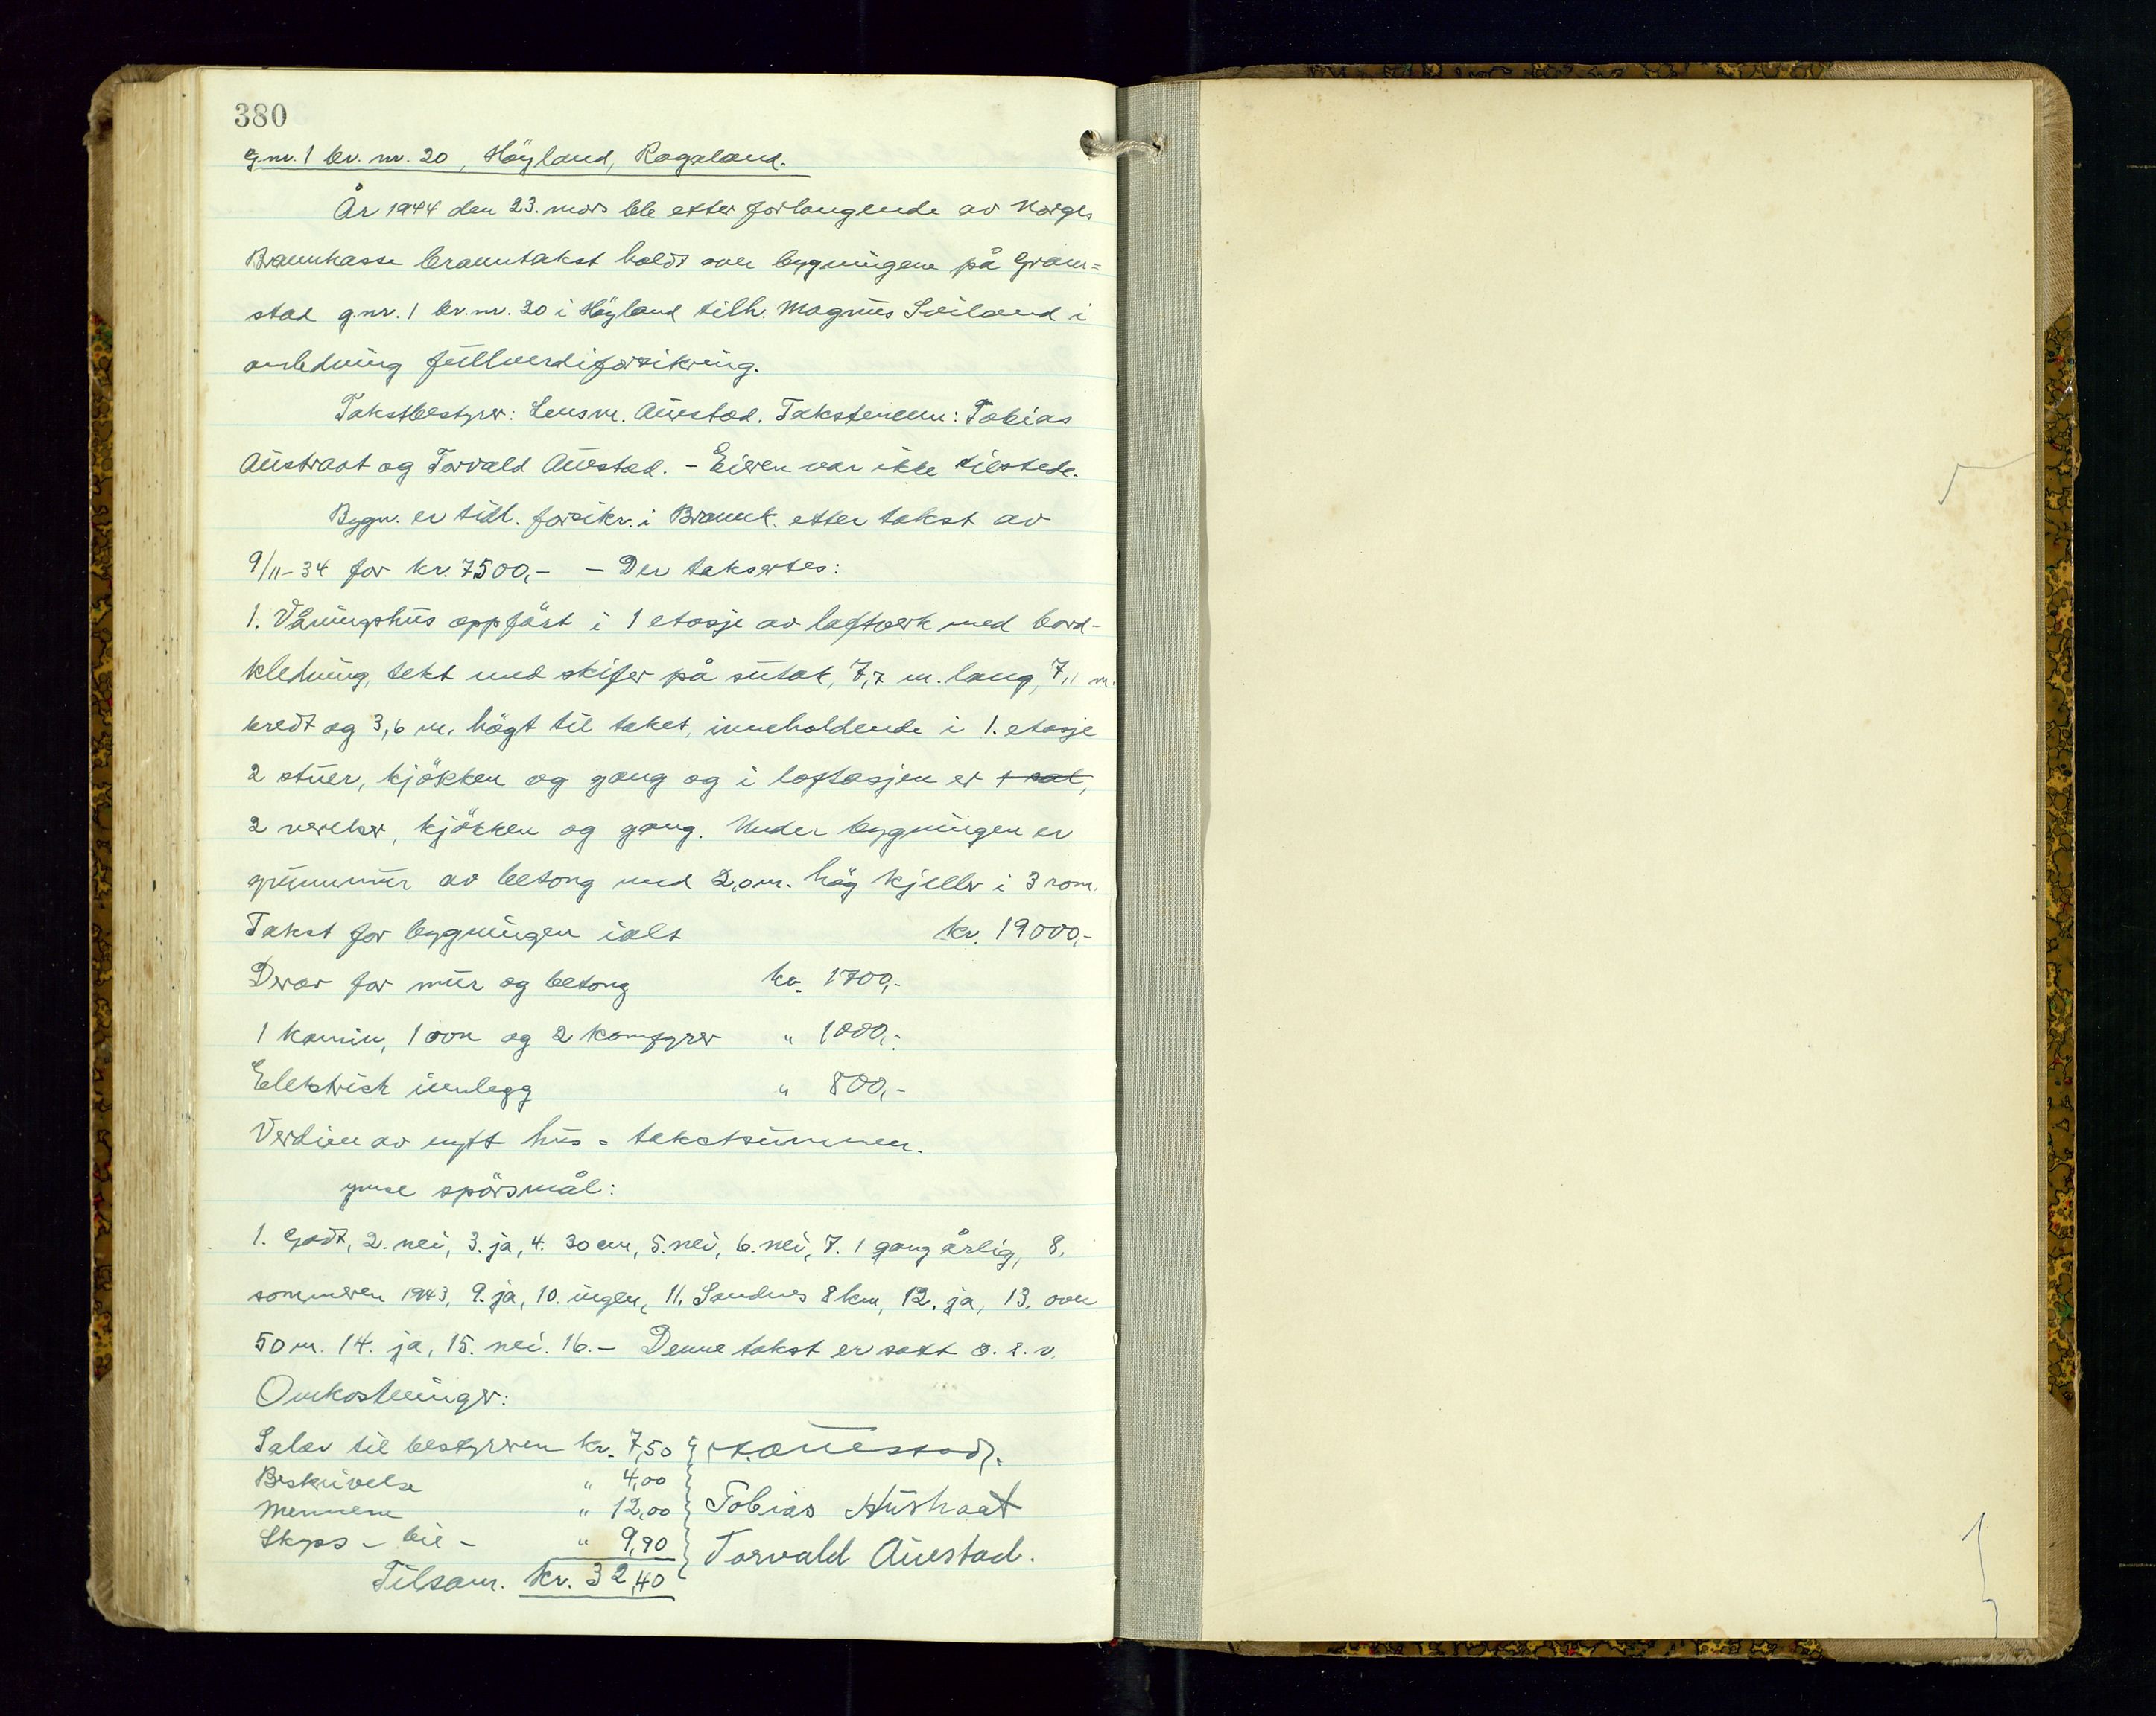 380
g.nr. 1 br. nr. 20, Höyland, Rogaland.
År 1944 den 23. mars ble etter forlangende av Norges
Brannkasse branntakst holdt over bygningene på Gram=
stad g.nr. 1 br.nr. 20 i Höyland tilh. Magnus Sviland i
anledning fullverdiforsikring.
Takstbestyrer: Lensm. Auestad. Takstmenn: Tobias
Austraat og Torvald Auestad. - Eieren var ikke tilstede.
Bygn. er tidl. forsikr. i Brannk. etter takst av
9/11-34 for kr. 7500,- - Der takseres:
1. Våningshus oppfört i 1 etasje av laftverk med bord-
kledning, tekt med skifer på sutak, 7,7 m. lang, 7,1 m.
bredt og 3,6 m. högt til taket, inneholdende i 1. etasje
2 stuer, kjökken og gang og i loftasjen er 1 sal,
2 verelser, kjökken og gang. Under bygningen er
grunnmur av betong med 2,0 m. hög kjeller i 3 rom.
Takst for bygningen ialt kr. 19000,-
Derav for mur og betong kr. 1700,-
1 kamin, 1 ovn og 2 komfyrer " 1000,-
Elektrisk innlegg " 800,-
Verdien av nytt hus = takstsummen.
ymse spörsmål:
1. Godt, 2. nei, 3. ja, 4. 30 cm, 5. nei, 6. nei, 7. 1 gang årlig, 8.
sommeren 1943, 9. ja, 10. ingen, 11. Sandnes 8 km, 12. ja, 13. over
50 m. 14. ja, 15. nei. 16. - Denne takst er satt o. s. v.
Omkostninger:
Salær til bestyreren kr. 7,50 Auestad.
Beskrivelse " 4,00
Mennene " 12,00 Tobias Austraat
Skyss - bil - " 9,90 Torvald Auestad.
Tilsam. kr. 32,40